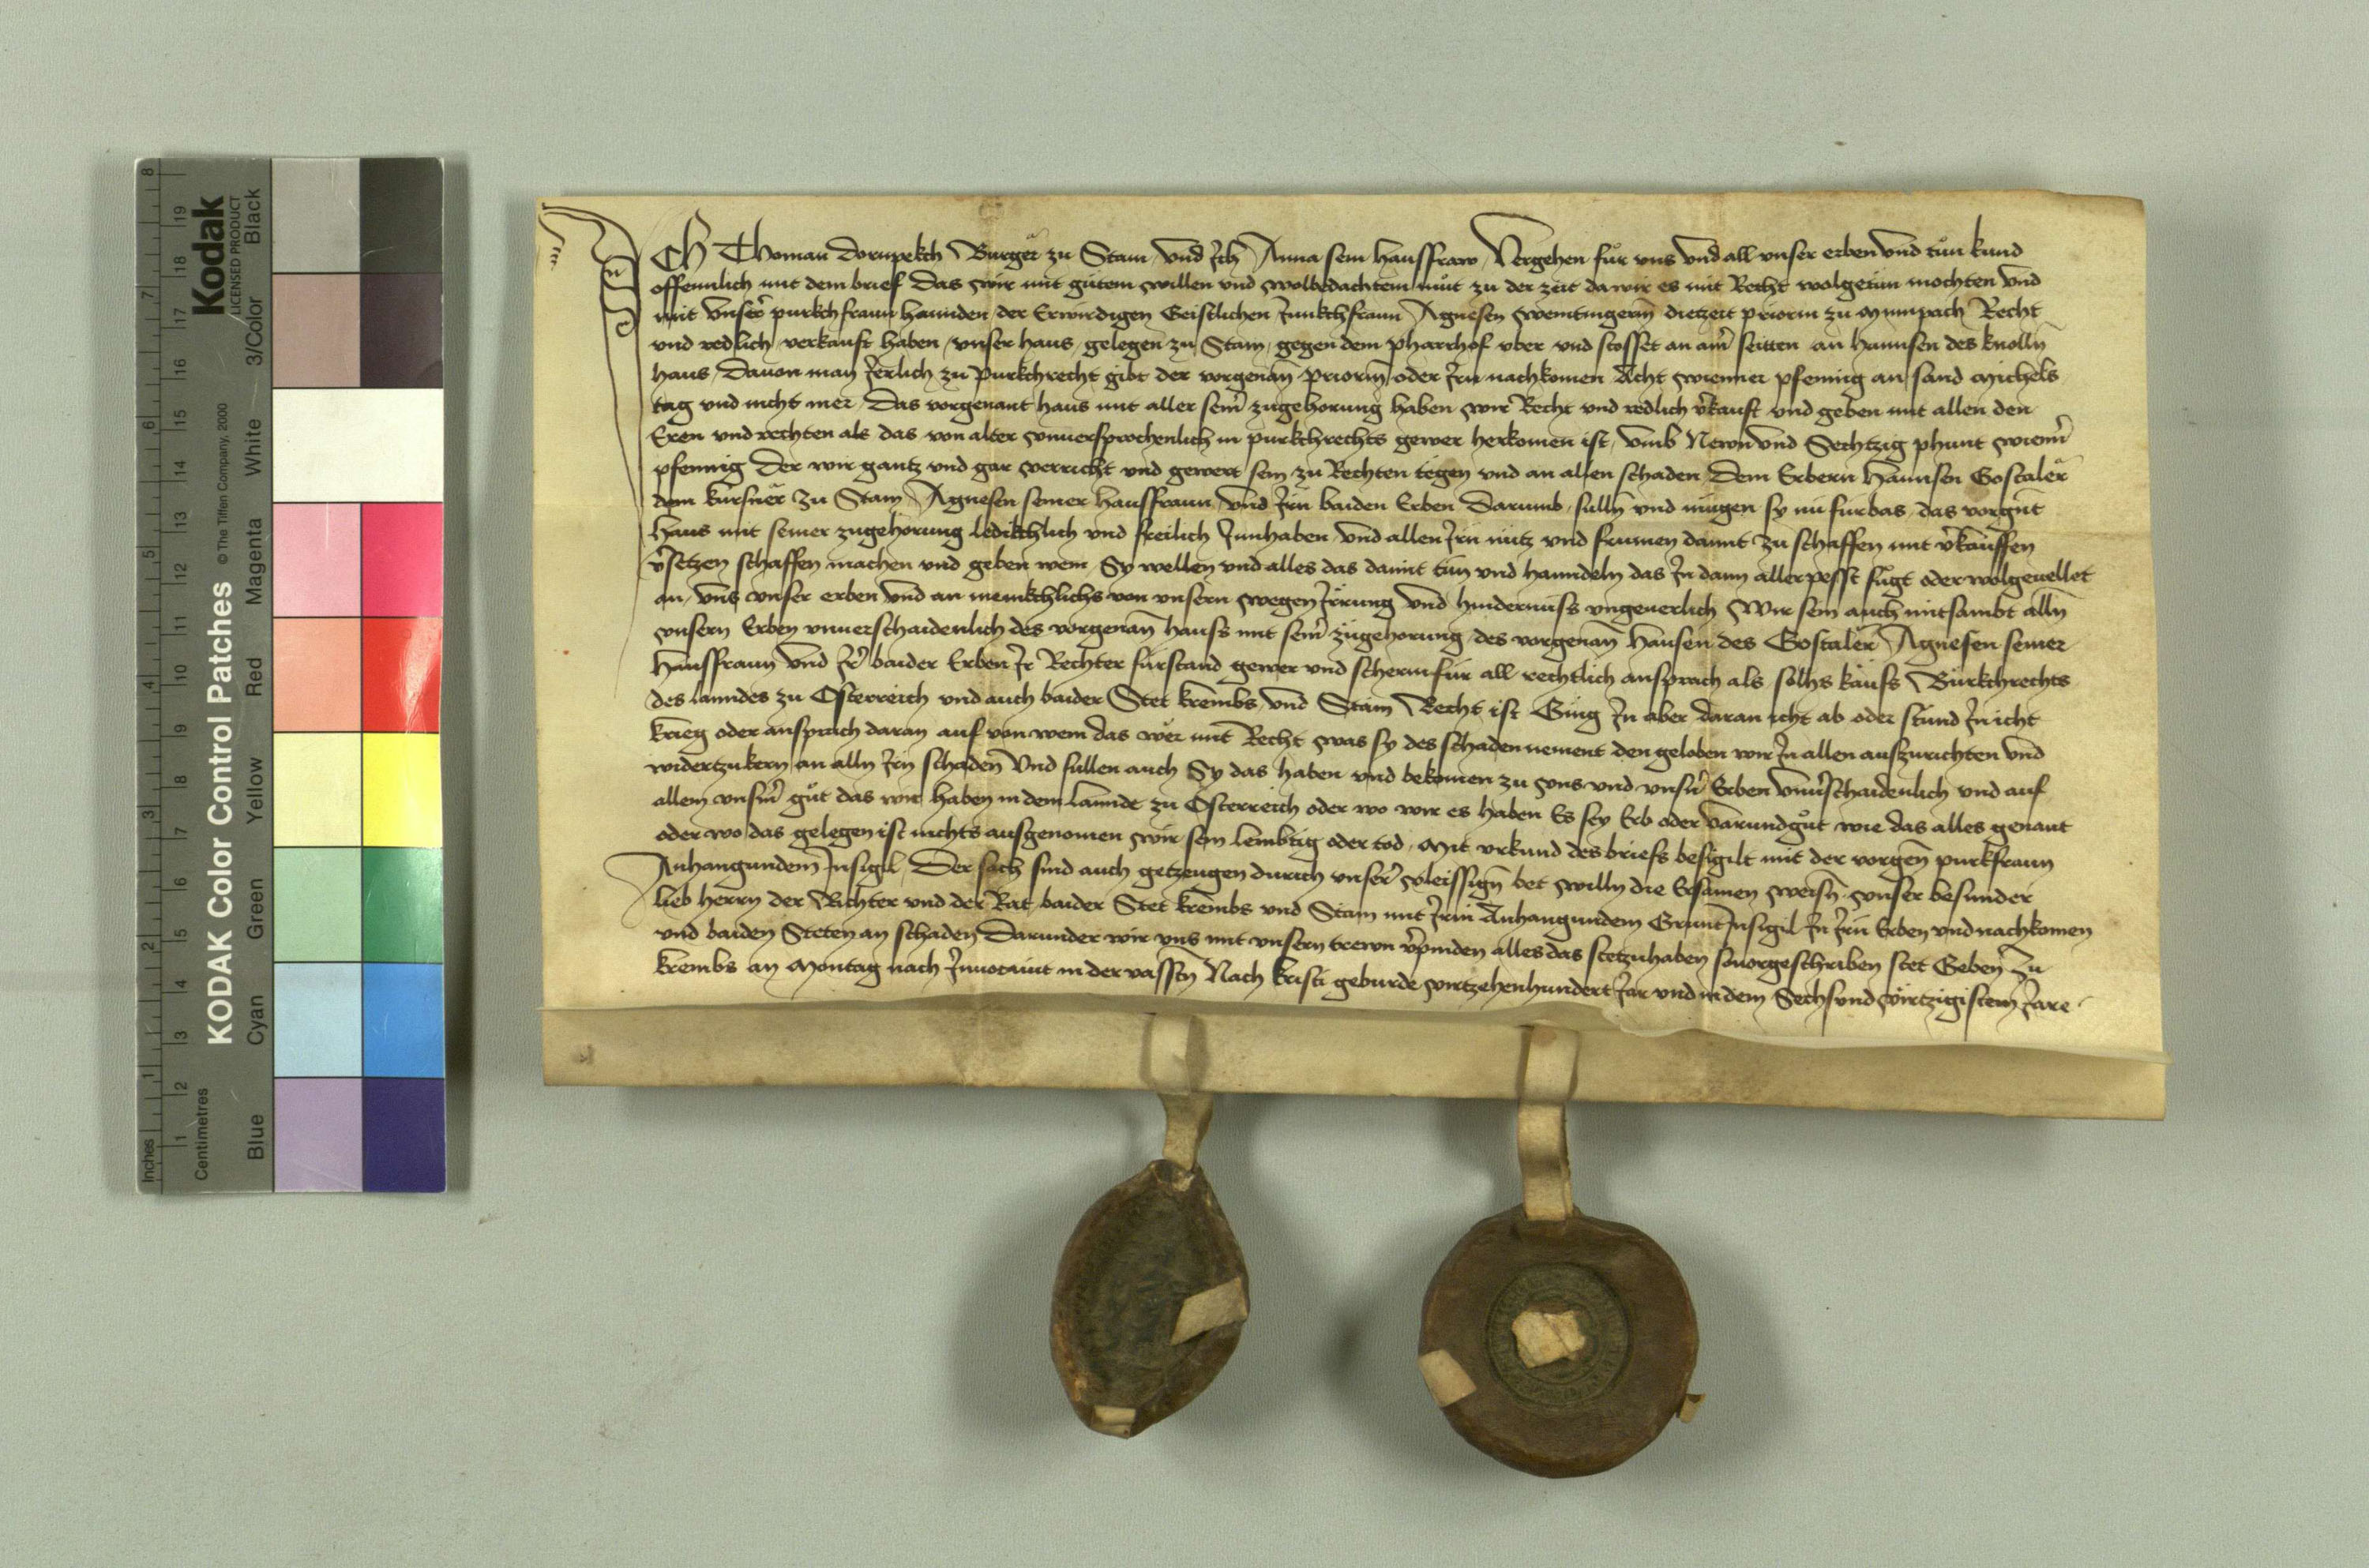 KODAK Color Control Patches
Kodak
LICENSED PRODUCT
© The Tiffen Company, 2000
Inches
1 2 3 4 5 6 7 8
Centimetres
1 2 3 4 5 6 7 8 9 10 11 12 13 14 15 16 17 18 19
Blue Cyan Green Yellow Red Magenta White 3/Color Black
Ich Thoman Dornpekch Burger zu Stain und Ich Anna sein hausfraw Vergehen für uns und all unser erben und tůn kund
offennlich mit dem brief Das wir mit gůtem willen und wolbedachtem můt zu der zeit da wir es mit Recht wolgetůn mochten Und
mit Unser̄ purkchfraun hannden der Erwirdigen Geistlichen Junkchfraun Agnesen dietzeit priorin zu Minnpach Recht
und redlich verkauft haben unser haus gelegen zu Stain gegen dem pharrhof vber und stosset an aim̄ seitten an Hannsen des knolln̄
haus Dauon man Jerlich zu Purkchrecht gibt der vorgenan̄ priorin̄ oder Irn nachkomen Acht wienner pfennig an sand Michels
tag und nicht mer Das vorgenant haus mit aller seim̄ zugehorung haben wir Recht und redlich v̄kauft und geben mit allen den
Eren und rechten als das von alter vnuersprochenlich in purkchrechts gewer herkomen ist Umb Newn und Sechtzig phunt wienn̄
pfennig Der wir gantz und gar verricht und gewert sein zu Rechten tegen und an allen schaden Dem Erbern Hannsen Gostaler
dem kursner zu Stain Agnesen seiner hausfraun und Irn baiden Erben Darumb sulln̄ und mugen sy nu furbas das vorgn̄t
haus mit seiner zugehorung ledikchlich und freilich Innhaben und allen Irn nutz und frumen damit zu schaffen mit v̄kauffen
v̄setzen schaffen machen und geben wem Sy wellen und alles das damit tun und hanndeln das In dann allerpesst fůgt oder wolgeuellet
an uns unser erben und an menikchlichs von unsern wegen Irrung und hindernuss ungeuerlich Wir sein auch mitsambt alln̄
unsern Erben unuerschaidenlich des vorgenan̄ hauss mit seim̄ zugehorung des vorgenan̄ Hansen des Gostaler Agnesen seiner
hausfraun und Ir̄ baider Erben Ir Rechter furstand gewer und scherm fur all rechtlich ansprach als solhs kaufs Burkchrechts
des lanndes zu Osterreich und auch baider Stet krembs und Stain Recht ist Ging In aber daran icht ab oder stund In icht
krieg oder ansprach daran auf von wem das wer mit Recht was sy des schaden nement den geloben wir In allen auszurichten und
widertzukern an alln Irn schaden Und sullen auch Sy das haben und bekomen zu uns und unsn̄ Erben Unuer̄schaidenlich und auf
allem unsm̄ gůt das wir haben in dem lannde zu Osterreich oder wo wir es haben Es sey Erb oder varundgůt wie das alles genant
oder wo das gelegen ist nichts ausgenomen wir sein lembtig oder tod Mit urkund des briefs besigilt mit der vorgen̄ purkfraun
Anhangundem Insigil Der sach sind auch getzeugen durich unser̄ vleissign̄ bet willn die Ersamen weisn̄ unser besunder
lieb herrn der Richter und der Rat baider Stet krembs und Stain mit Irm Anhangundem Grunt Insigil In Irn Erben und nachkomen
und baiden Steten an schaden Darunder wir uns mit unsern trewn v̄pinden alles das stetzuhaben so uorgeschriben stet Geben Zu
krembs an Montag nach Inuocauit in der vassten̄ Nach kristi geburde virtzehenhundert Jar und in dem Sechsundvirtzigistem Jare